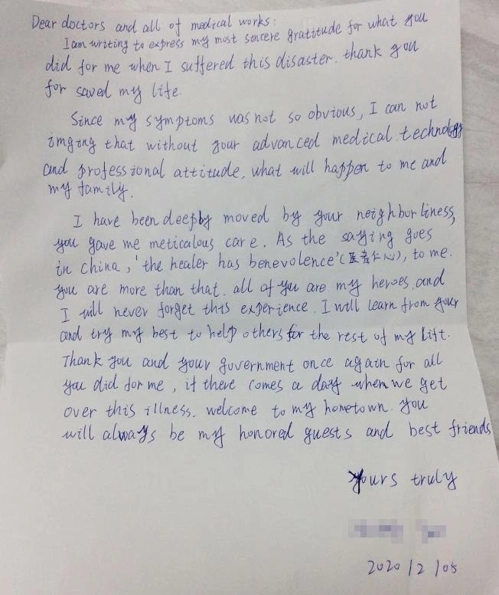 Dear doctors and all of medical works:
I am writing to express my most sincere gratitude for what you
did for me when I suffered this disaster. thank you
for saved my life.
Since my symptoms was not so obvious, I can not
imging that without your advanced medical technology
and professional attitude, what will happen to me and
my family.
I have been deeply moved by your neighborliness,
you gave me meticalous care. As the saying goes
in china, 'the healer has benevolence' (医者仁心), to me.
you are more than that. all of you are my heroes. and
I will never forget this experience. I will learn from your
and try my best to help others for the rest of my lift.
Thank you and your government once again for all
you did for me, if there comes a day when we get
over this illness. welcome to my hometown. you
will always be my honored guests and best friends
yours truly
2020/2/05